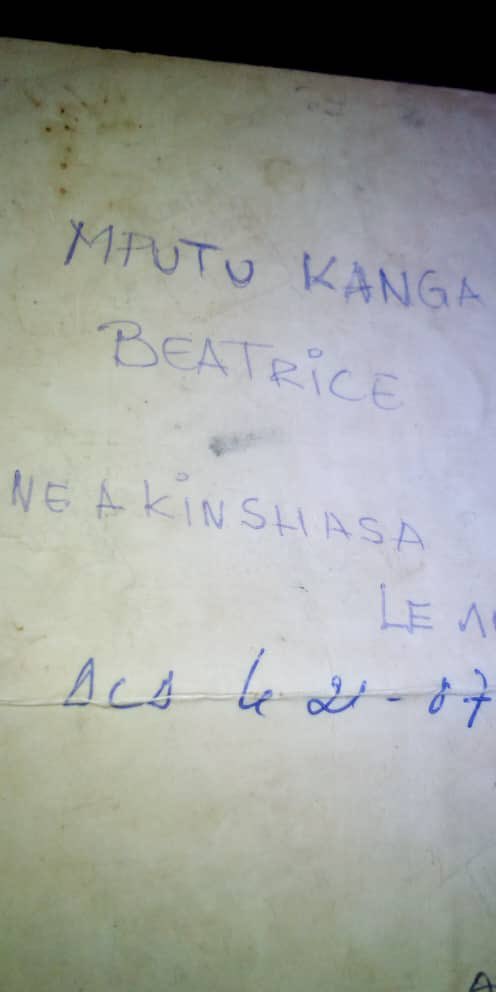 MPUTU KANGA
BEATRICE
NE A KINSHASA
LE
DCD le 21-07
A